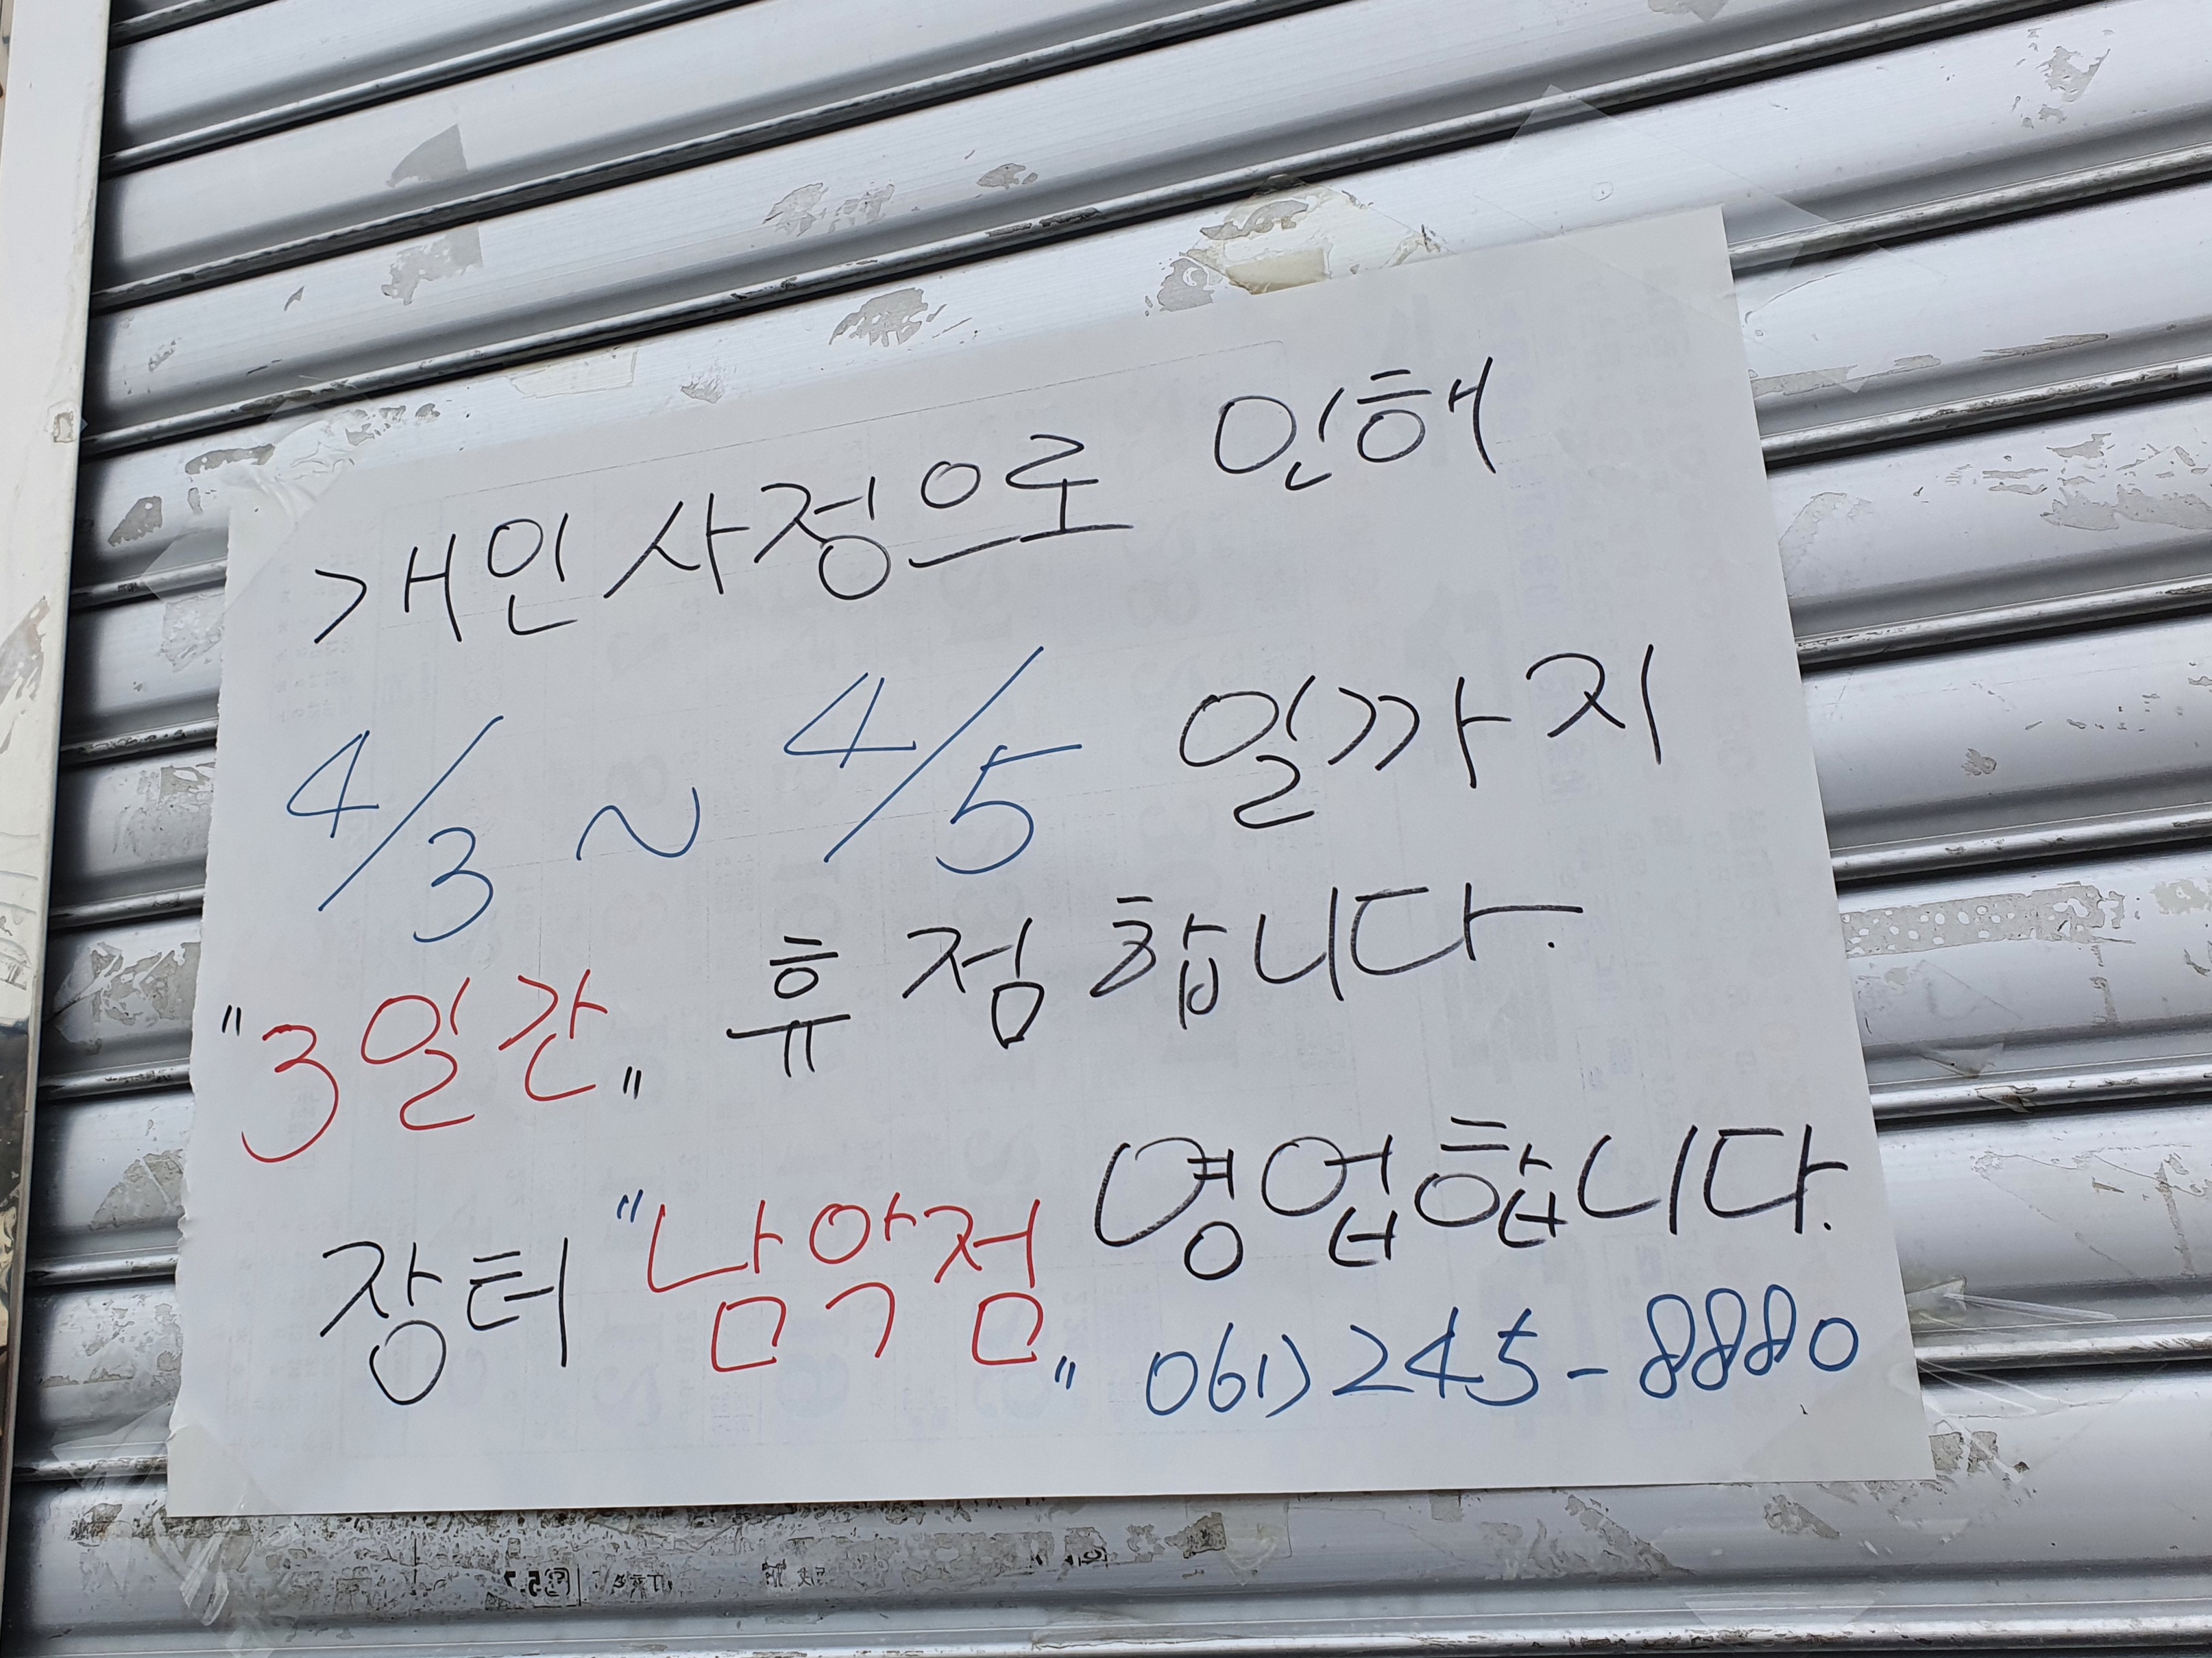 개인사정으로 인해
4/3 ~ 4/5 일까지
"3일간" 휴점합니다.
장터 "남악점" 영업합니다.
061) 245-8880